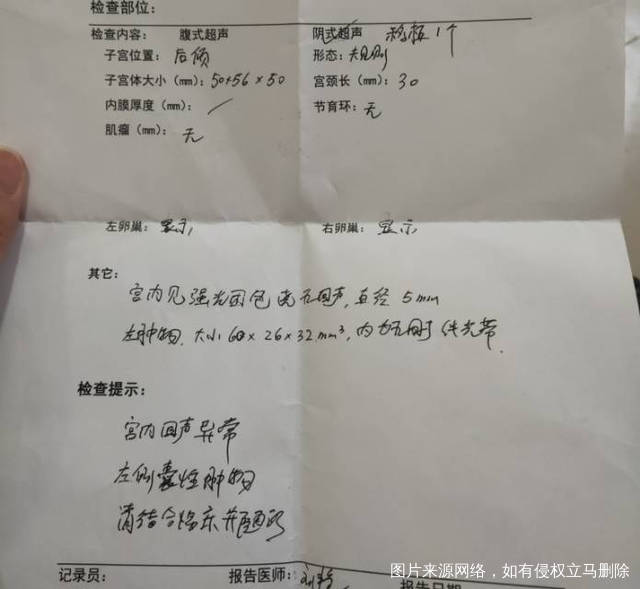 检查部位：
检查内容： 腹式超声 阴式超声 1个
子宫位置：后倾 形态：规则
子宫体大小（mm）：50×56×50 宫颈长（mm）：30
内膜厚度（mm）：／ 节育环：无
肌瘤（mm）：无
左卵巢：显示 右卵巢：显示
其它：
宫内见强光团包 无回声，直径5mm
左肿物，大小60×26×32mm³，内 光带.
检查提示：
宫内回声异常
左侧囊性肿物
请结合临床并
记录员： 报告医师： 报告日期
图片来源网络，如有侵权立马删除